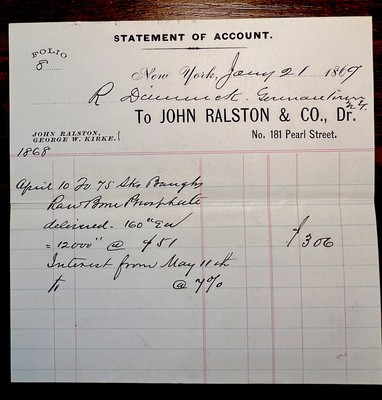 STATEMENT OF ACCOUNT.
FOLIO
8
New York, Jany 21 1869
R Dimmick. Germantown N.Y.
To JOHN RALSTON & CO., Dr.
JOHN RALSTON,
GEORGE W. KIRKE.
No. 181 Pearl Street.
1868
April 10 To 75 Sks Baughs
Raw Bone Phosphate
delivered. 160" Ea
= 12000" @ $51 $306
Interest from May 11th
@ 7%